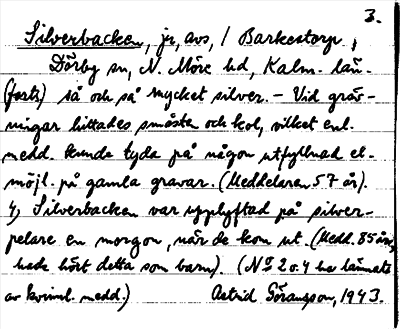 3.
Silverbacken, jr, avs, / Barkestorp,
Dörby sn, N. Möre hd, Kalm. län.
(forts) så och så mycket silver. – Vid gräv-
ningar hittades småsten och kol, vilket enl.
medd. kunde tyda på någon utfyllnad el.
möjl. på gamla gravar. (Meddelaren 57 år).
4, Silverbacken var upplyftad på silver-
pelare en morgon, när de kom ut. (Medd. 85 år,
hade hört detta som barn). (No 2 o. 4 ha lämnats
av kvinnl. medd.) Astrid Göransson, 1943.